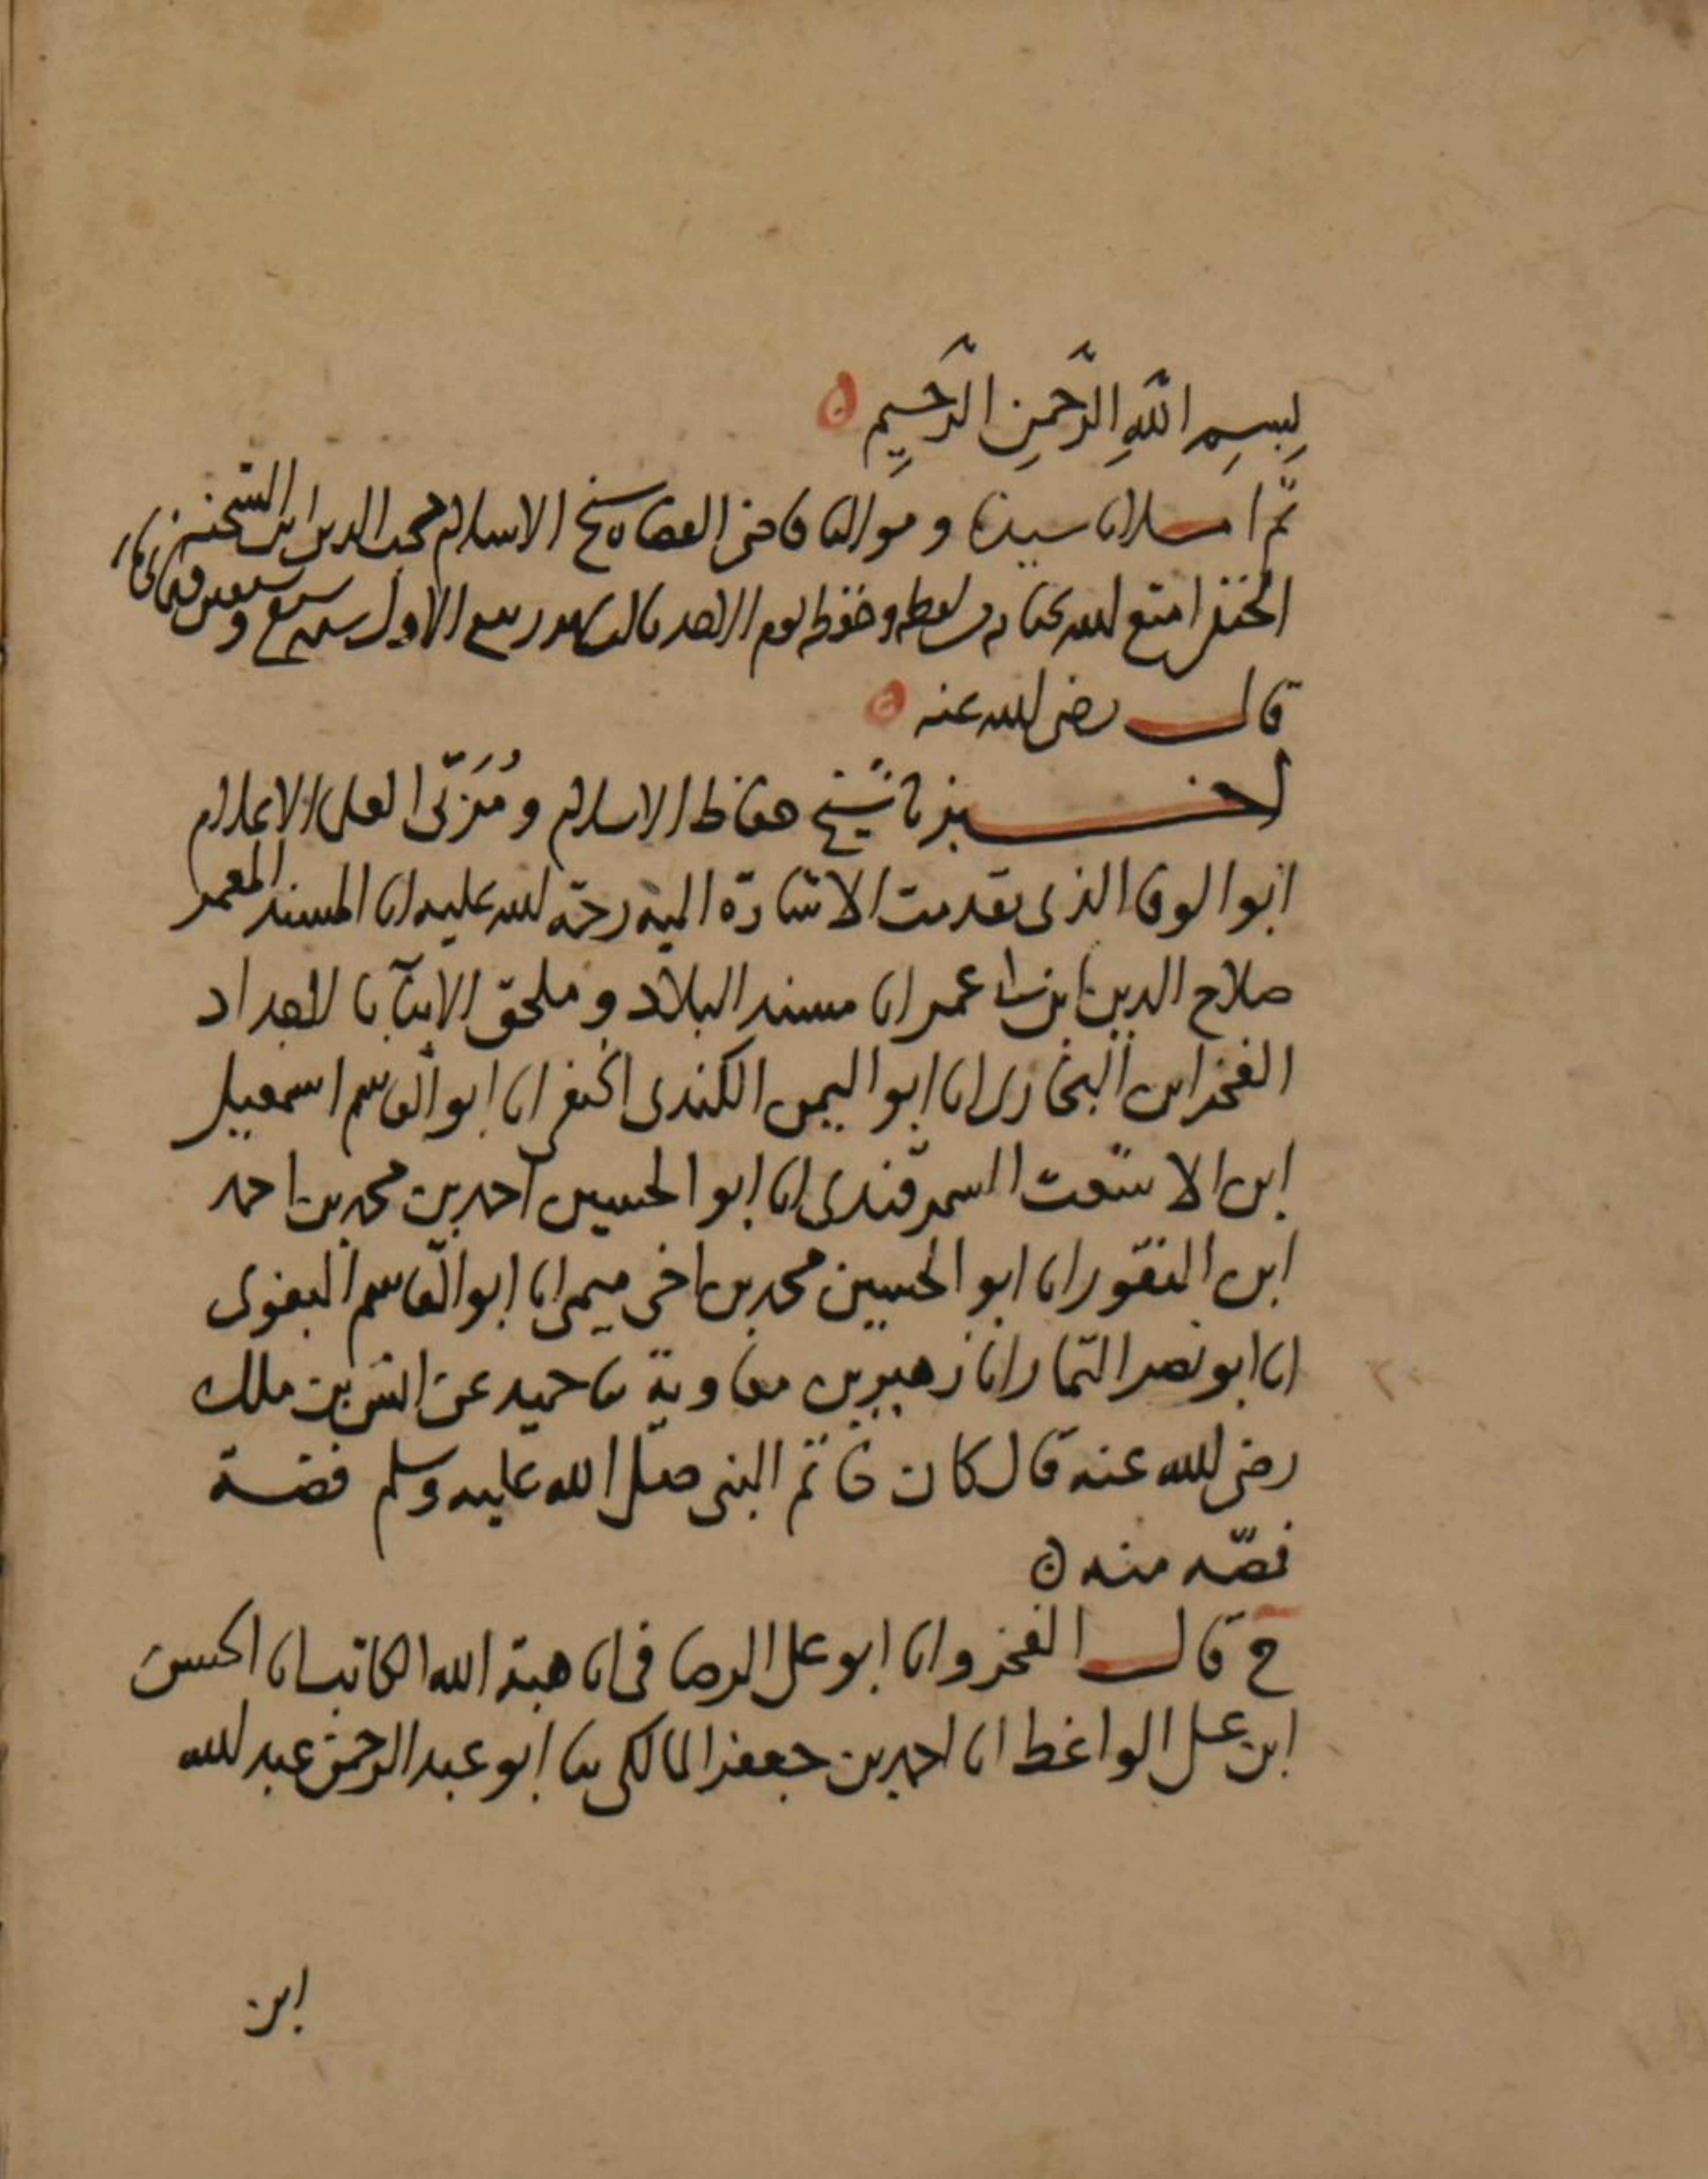 بِسمِ اللّهِ الرَّحمنِ الرَّحيمِ ٥
ثم املانا سيدنا ومولانا قاضى القضاه شيخ الاسلام محب الدين ابن الشحنه
الحنفى امتع الله بحياته لفظه وحفظه يوم الاحد ثالث شهر ربيع الاول سنه سبع وستين وثماني مايه
قال رضى الله عنه ٥
اخبرنا شيخ حفاظ الاسلام ومُزَكّى العلماء الاعلام
ابوا الوفا الذى تقدمت الاشارة اليه رحمة الله عليه انا المسند المعمر
صلاح الدين ابن ابى عمر انا مسند البلاد وملحق الابنآ بالاجداد
الفخر ابن البخارى انا ابوا اليمن الكندى الحنفى انا ابو القاسم اسمعيل
ابن الاشعت السمرقندى انا ابو الحسين احمد بن محمد بن احمد
ابن النقور انا ابو الحسين محمد بن اخى ميمى انا ابو القاسم البغوى
انا ابو نصر التمار انا زهير بن معاوية نا حميد عن انس بن ملك
رضى الله عنه قال كان خاتم النبى صلى الله عليه وسلم فضة
فصّه منه ن
ح قال الفخر وانا ابو على الرصافى انا هبة الله الكاتب انا الحسن
ابن على الواعظ انا احمد بن جعفر المالكى ثنا ابو عبد الرحمن عبد الله
ابن